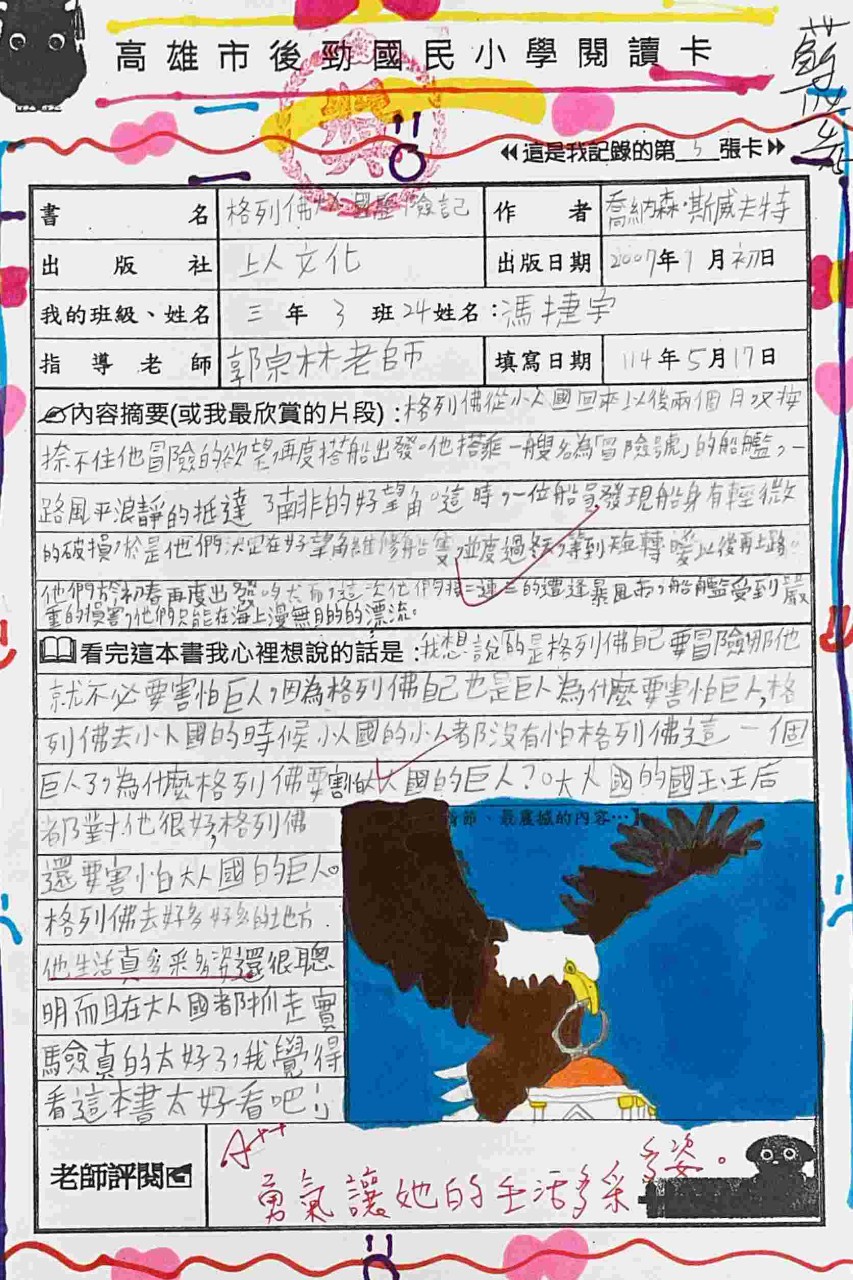 高雄市後勁國民小學閱讀卡
這是我記錄的第 5 張卡
書名 格列佛大人國歷險記 作者 喬納森·斯威夫特
出版社 上人文化 出版日期 2007年7月初日
我的班級、姓名 三年3班24姓名:馮捷宇
指導老師 郭宗林老師 填寫日期 114年5月17日
內容摘要(或我最欣賞的片段):格列佛從小人國回來以後兩個月又按
捺不住他冒險的欲望,再度搭船出發。他搭乘一艘名為「冒險號」的船艦,一
路風平浪靜的抵達了南非的好望角。這時,一位船員發現船身有輕微
的破損,於是他們決定在好望角維修船隻,並度過冬天,等到天氣轉暖以後再上路。
他們於初春再度出發,然而,這次他們接二連三的遭逢暴風雨,船艦受到嚴
重的損害,他們只能在海上漫無目的的漂流。
看完這本書我心裡想說的話是:我想說的是格列佛自己要冒險那他
就不必要害怕巨人,因為格列佛自己也是巨人為什麼要害怕巨人,格
列佛去小人國的時候小人國的小人都沒有怕格列佛這一個
巨人了,為什麼格列佛要害怕大人國的巨人?。大人國的國王、王后
都對他很好,格列佛
還要害怕大人國的巨人。
格列佛去好多好多的地方
他生活真多采多姿還很聰
明而且在大人國都抓走實
馬險真的太好了,我覺得
看這本書太好看吧!
情節、最震撼的內容…】
老師評閱
A++
勇氣讓她的生活多采多姿。